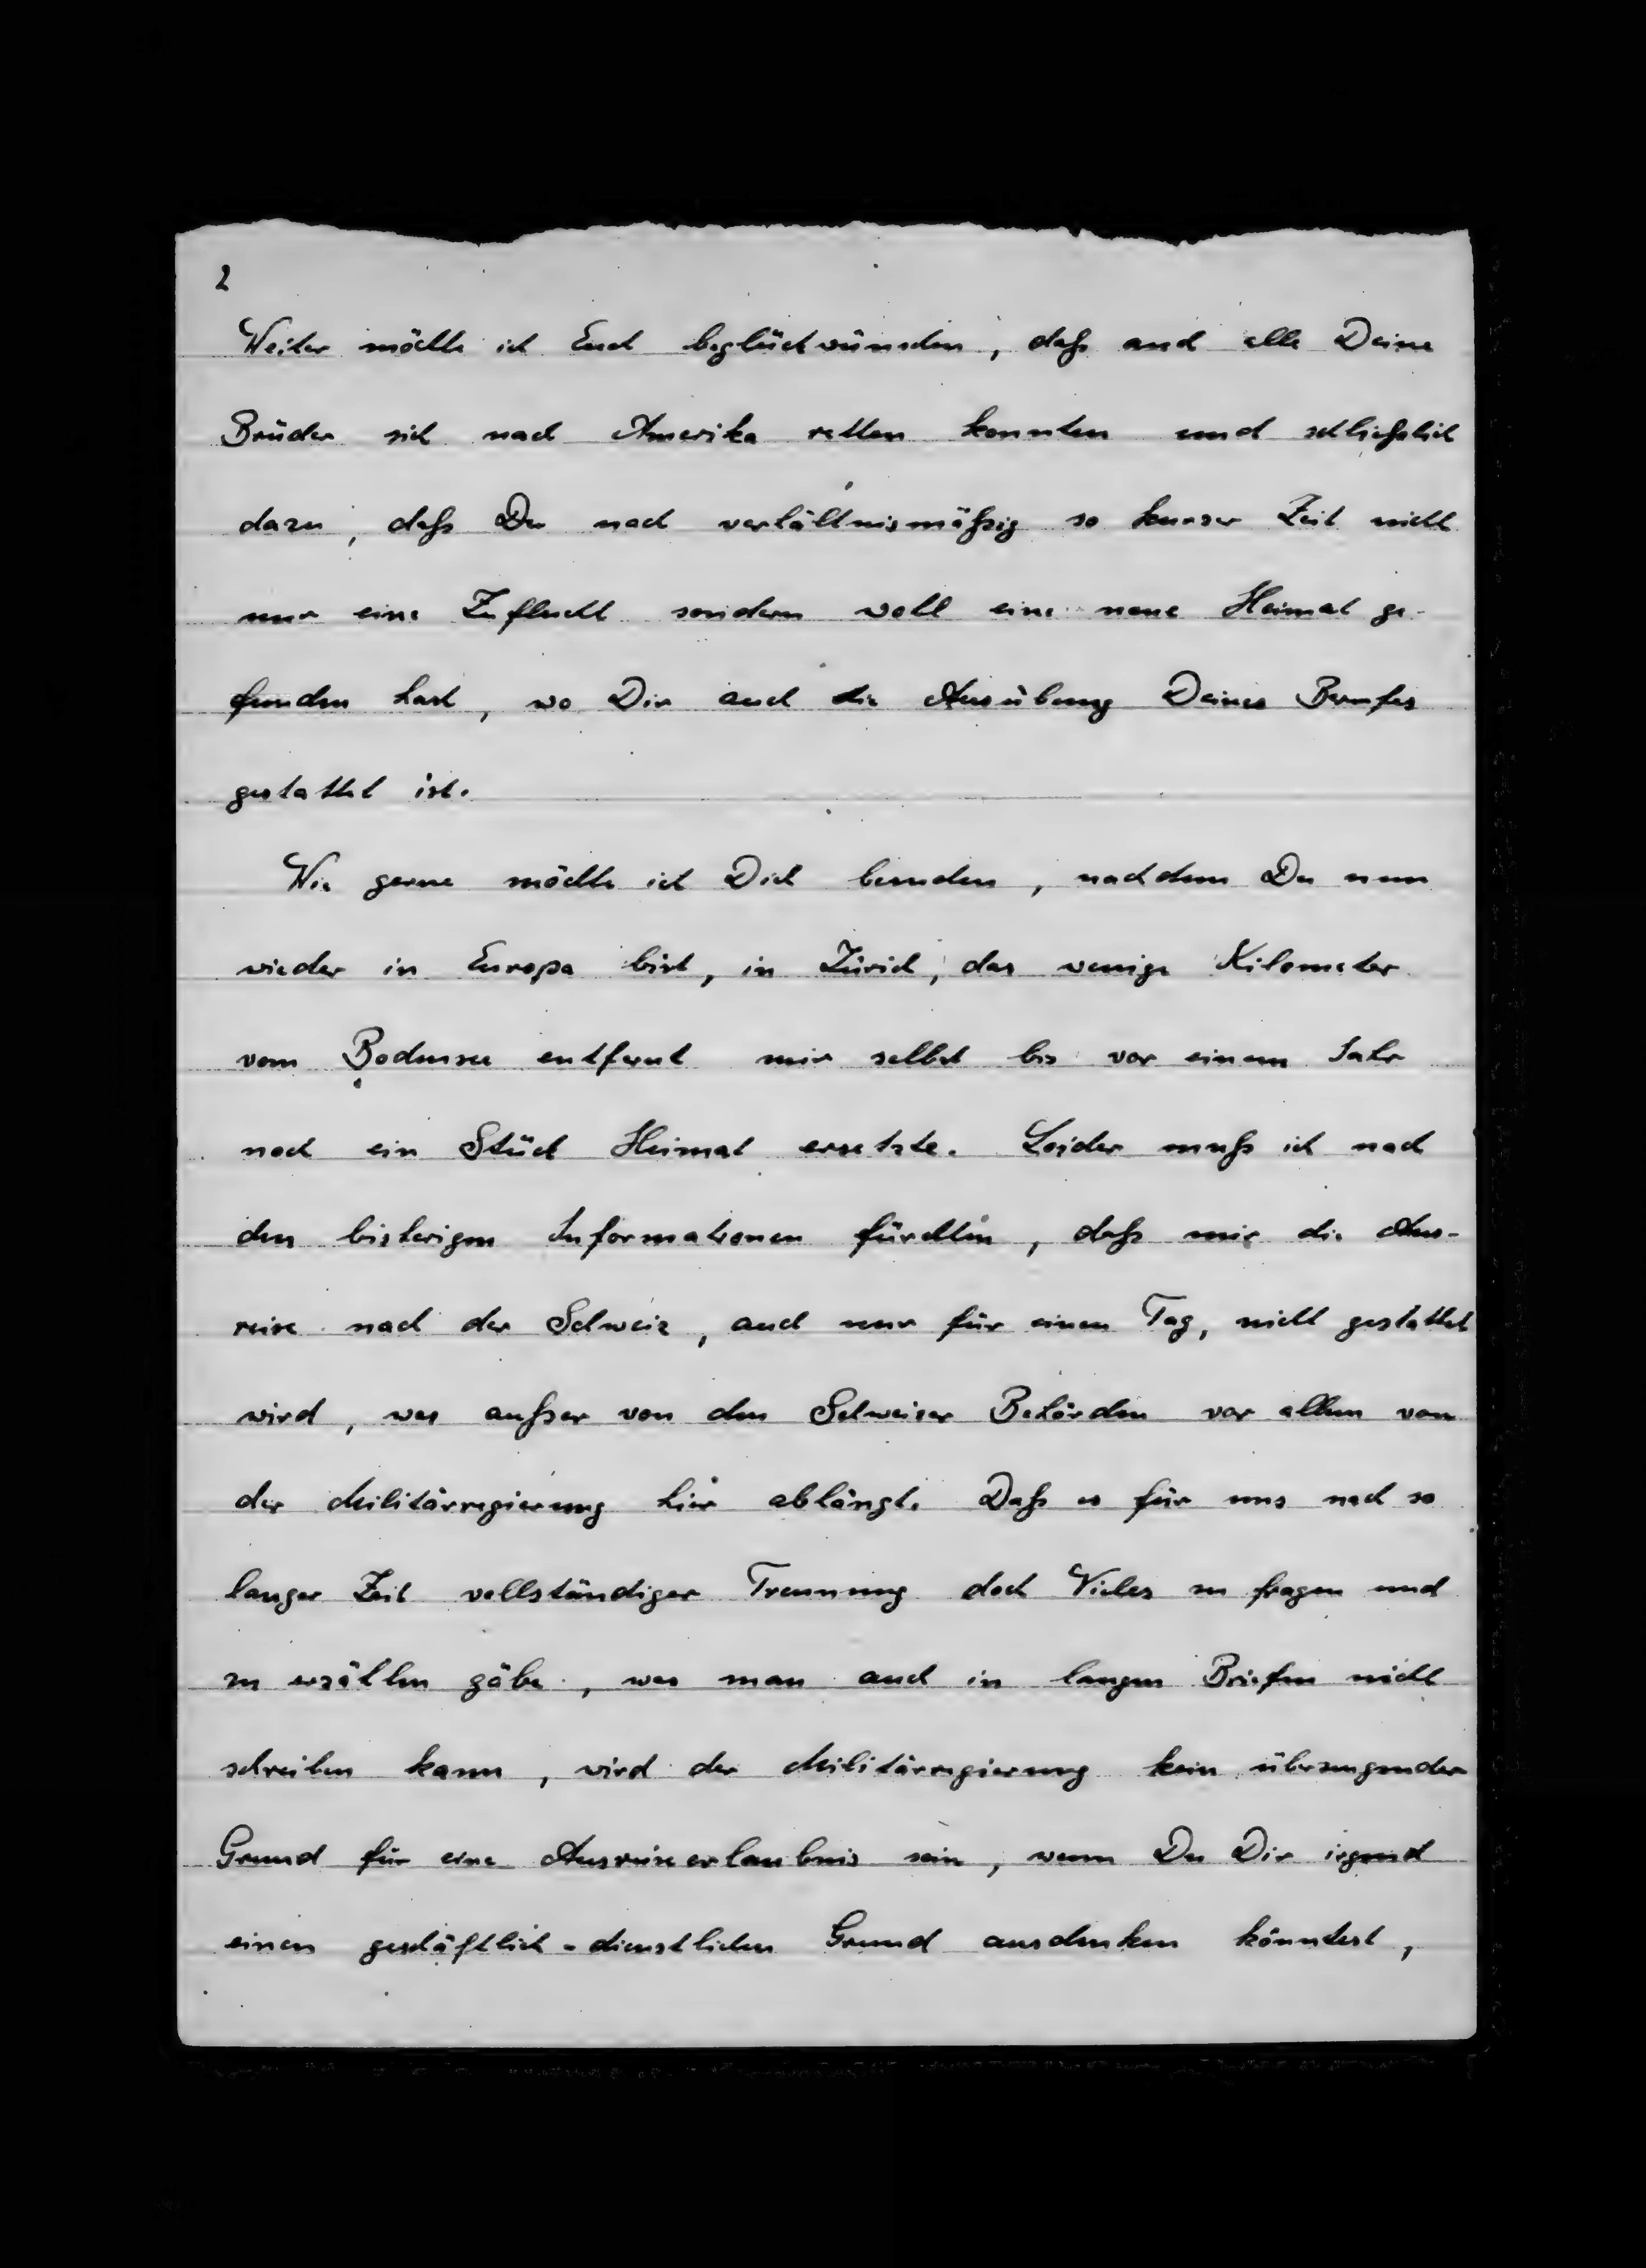 2
Weiter möchte ich Euch beglückwünschen, daß auch alle Deine
Brüder sich nach Amerika retten konnten und schließlich
dazu, daß Du nach verhältnismäßig so kurzer Zeit nicht
nur eine Zuflucht sondern wohl eine neue Heimat ge-
funden hast, wo Dir auch die Ausübung Deines Berufes
gestattet ist.
Wie gerne möchte ich Dich besuchen, nachdem Du nun
wieder in Europa bist, in Zürich, das wenige Kilometer
vom Bodensee entfernt mir selbst bis vor einem Jahr
noch ein Stück Heimat ersetzte. Leider muß ich nach
den bisherigen Informationen fürchten, daß mir die Aus-
reise nach der Schweiz, auch nur für einen Tag, nicht gestattet
wird, was außer von den Schweizer Behörden vor allem von
der Militärregierung hier abhängt. Daß es für uns nach so
langer Zeit vollständiger Trennung doch Vieles zu fragen und
zu erzählen gäbe, was man auch in langen Briefen nicht
schreiben kann, wird der Militärregierung kein überzeugender
Grund für eine Ausreiseerlaubnis sein, wenn Du Dir irgend
einen geschäftlich-dienstlichen Grund ausdenken könntest,